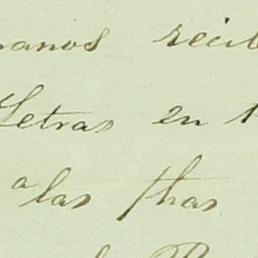 manos recib
Letras en 1
a las fhas